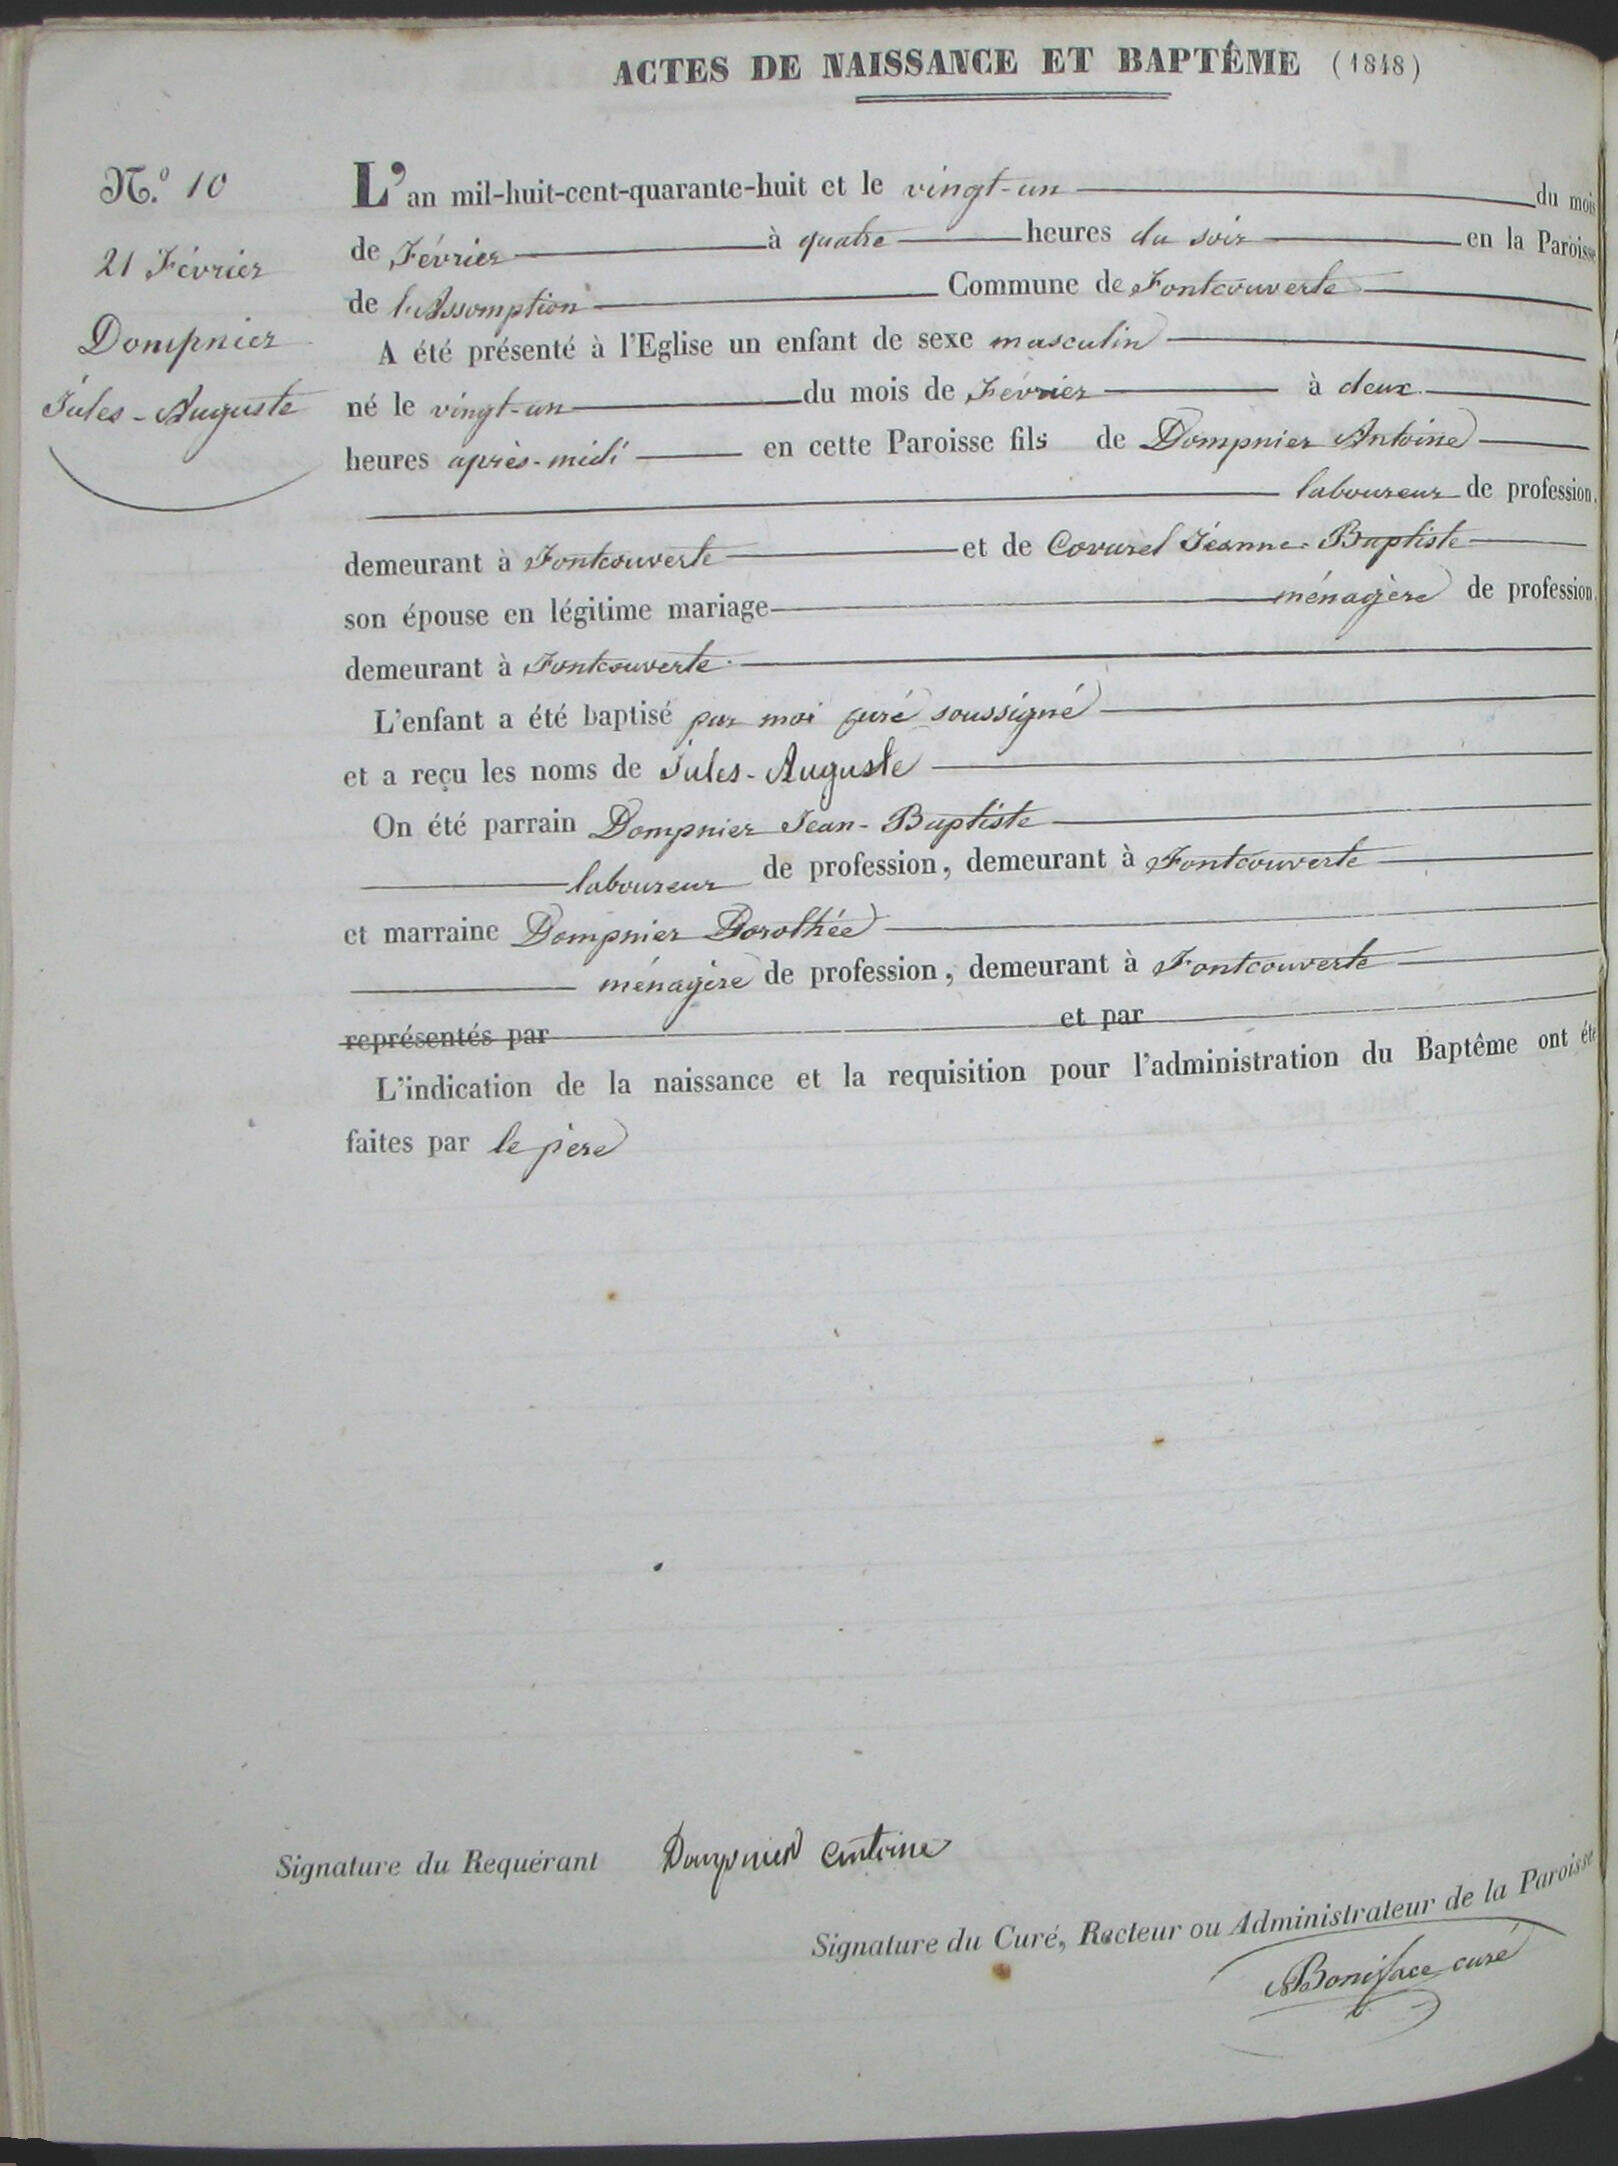 ACTES DE NAISSANCE ET BAPTÊME (1848)
N.º 10
21 Février
Dompnier
Jules-Auguste
L'an mil-huit-cent-quarante-huit et le vingt-un du mois
de Février à quatre heures du soir en la Paroisse
de l'Assomption Commune de Fontcouverte
A été présenté à l'Eglise un enfant de sexe masculin
né le vingt-un du mois de Février à deux
heures après-midi en cette Paroisse fils de Dompnier Antoine
laboureur de profession,
demeurant à Fontcouverte et de Covarel Jeanne-Baptiste
son épouse en légitime mariage ménagère de profession,
demeurant à Fontcouverte
L'enfant a été baptisé par moi curé soussigné
et a reçu les noms de Jules-Auguste
On été parrain Dompnier Jean-Baptiste
laboureur de profession, demeurant à Fontcouverte
et marraine Dompnier Dorothée
ménagère de profession, demeurant à Fontcouverte
représentés par et par
L'indication de la naissance et la requisition pour l'administration du Baptême ont été
faites par le père
Signature du Requérant Dompnier Antoine
Signature du Curé, Recteur ou Administrateur de la Paroisse
Boniface curé